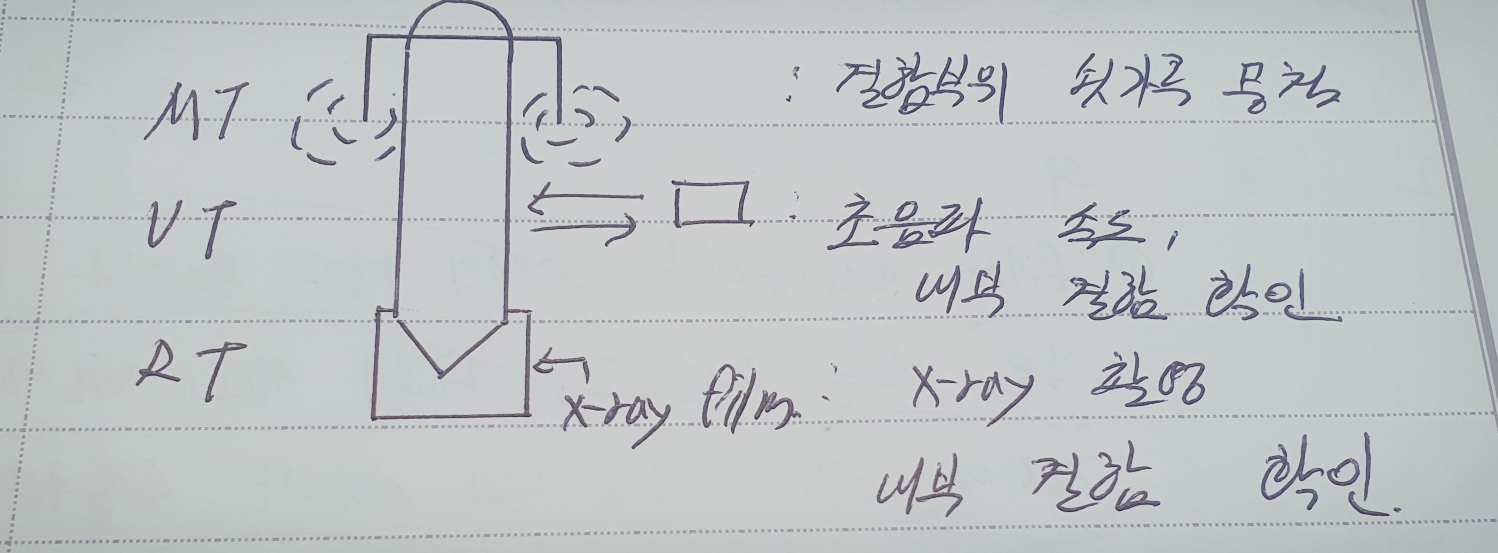 MT : 결함부위 쇳가루 뭉침
UT : 초음파 속도,
내부 결함 확인
RT x-ray film : x-ray 촬영
내부 결함 확인.